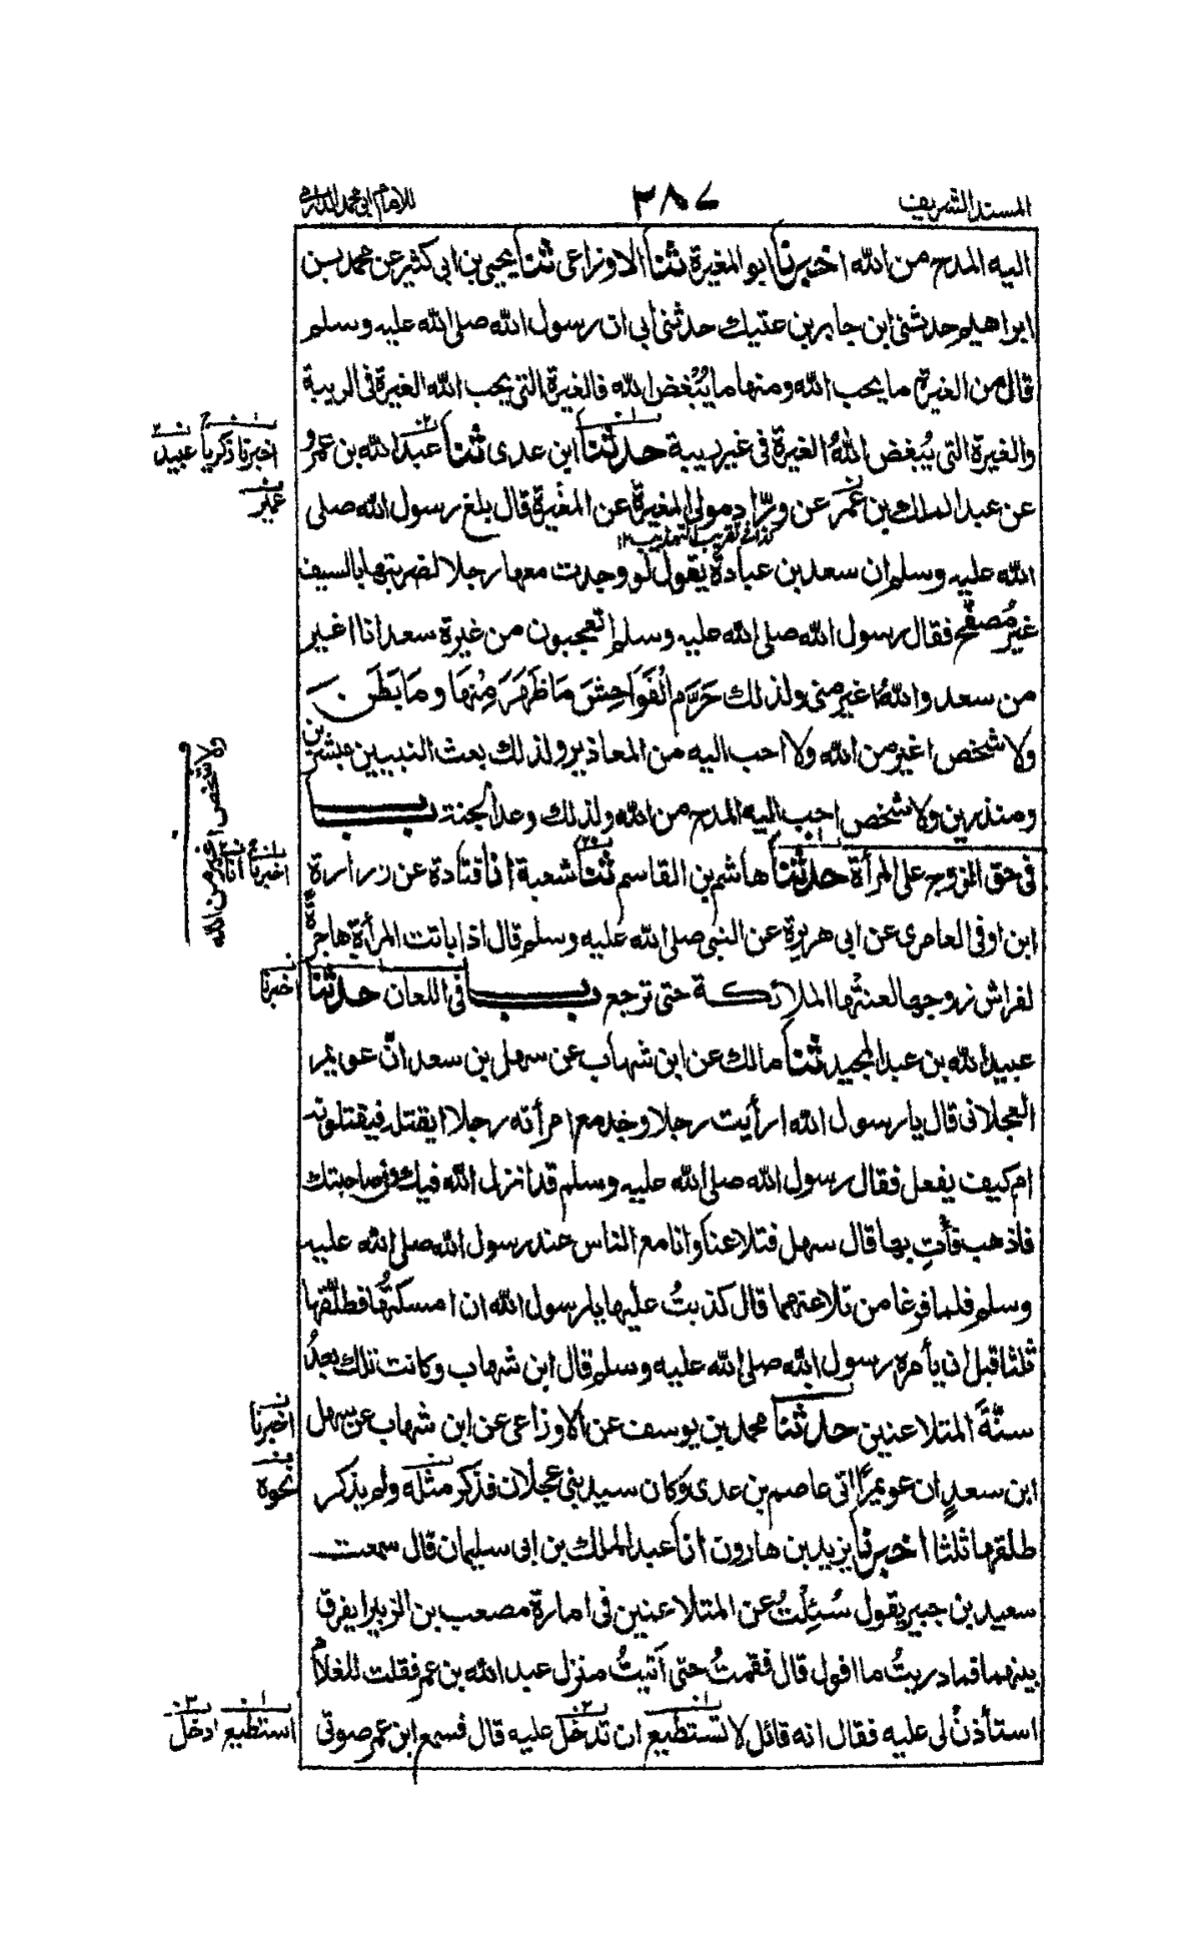 المسند الشريف
٣٨٧
للامام ابی محمد الدارمی
اليه المدح من الله اخبرنا ابو المغيرة ثنا الاوزاعی ثنا يحيی بن ابی كثير عن محمد بن
ابراهيم حدثنی ابن جابر بن عتيك حدثنی ابی ان رسول الله صلی الله عليه وسلم
قال من الغيرة ما يحب الله ومنها ما يُبْغض الله فالغيرة التی يحب الله الغيرة فی الريبة
والغيرة التی يُبغض اللهُ الغيرة فی غير ريبة حدثنا ابن عدی ثنا عبد الله بن عمرو
اخبرنا زكريا عبيد
عن عبد الملك بن عمر عن ورّاد مولی المغيرة عن المغيرة قال بلغ رسول الله صلی
عمير
كذا فی تقريب التهذيب ١٢
الله عليه وسلم ان سعد بن عبادة يقول لو وجدت معها رجلا لضربتها بالسيف
غير مُصفَّح فقال رسول الله صلی الله عليه وسلم تعجبون من غيرة سعد انا اغير
من سعد واللهُ اغير منی ولذلك حَرَّم الْفَوَاحِشَ مَا ظَهَرَ مِنْهَا وَمَا بَطَنَ
ولا شخص اغير من الله ولا احب اليه من المعاذير ولذلك بعث النبيين مبشرين
ومنذرين ولا شخص احب اليه المدح من الله ولذلك وعد الجنة باب
ولا شخص اغير من الله
فی حق الزوج علی المرأة حدثنا هاشم بن القاسم ثنا شعبة انا قتادة عن زرارة
اخبرنا انا
ابن اوفی العامری عن ابی هريرة عن النبی صلی الله عليه وسلم قال اذا باتت المرأة هاجرة
لفراش زوجها لعنتْها الملائكة حتی ترجع باب فی اللعان حدثنا
اخبرنا
عبيد الله بن عبد المجيد ثنا مالك عن ابن شهاب عن سهل بن سعد انّ عويمر
العجلانی قال يا رسول الله ارأيت رجلا وجد مع امرأته رجلا ايقتله فيقتلونه
ام كيف يفعل فقال رسول الله صلی الله عليه وسلم قد انزل الله فيك وفی صاحبتك
فاذهب فأتِ بها قال سهل فتلاعنا وانا مع الناس عند رسول الله صلی الله عليه
وسلم فلما فرغا من تلاعنهما قال كذبتُ عليها يا رسول الله ان امسكتُها فطلّقها
ثلثا قبل ان يأمره رسول الله صلی الله عليه وسلم قال ابن شهاب وكانت تلك بعدُ
سنّةَ المتلاعنين حدثنا محمد بن يوسف عن الاوزاعی عن ابن شهاب عن سهل
اخبرنا
ابن سعدٍ ان عويمرًا اتی عاصم بن عدی وكان سيد بنی عجلان فذكر مثله ولم يذكر
نحوه
طلقها ثلثا اخبرنا يزيد بن هارون انا عبد الملك بن ابی سليمان قال سمعت
سعيد بن جبير يقول سُئِلْتُ عن المتلاعنين فی امارة مصعب بن الزبير ايفرق
بينهما فما دريتُ ما اقول قال فقمتُ حتی اتيتُ منزل عبد الله بن عمر فقلت للغلام
استأذنْ لی عليه فقال انه قائل لا تستطيع ان تدخل عليه قال فسمع ابن عمر صوتی
استطيع ادخل